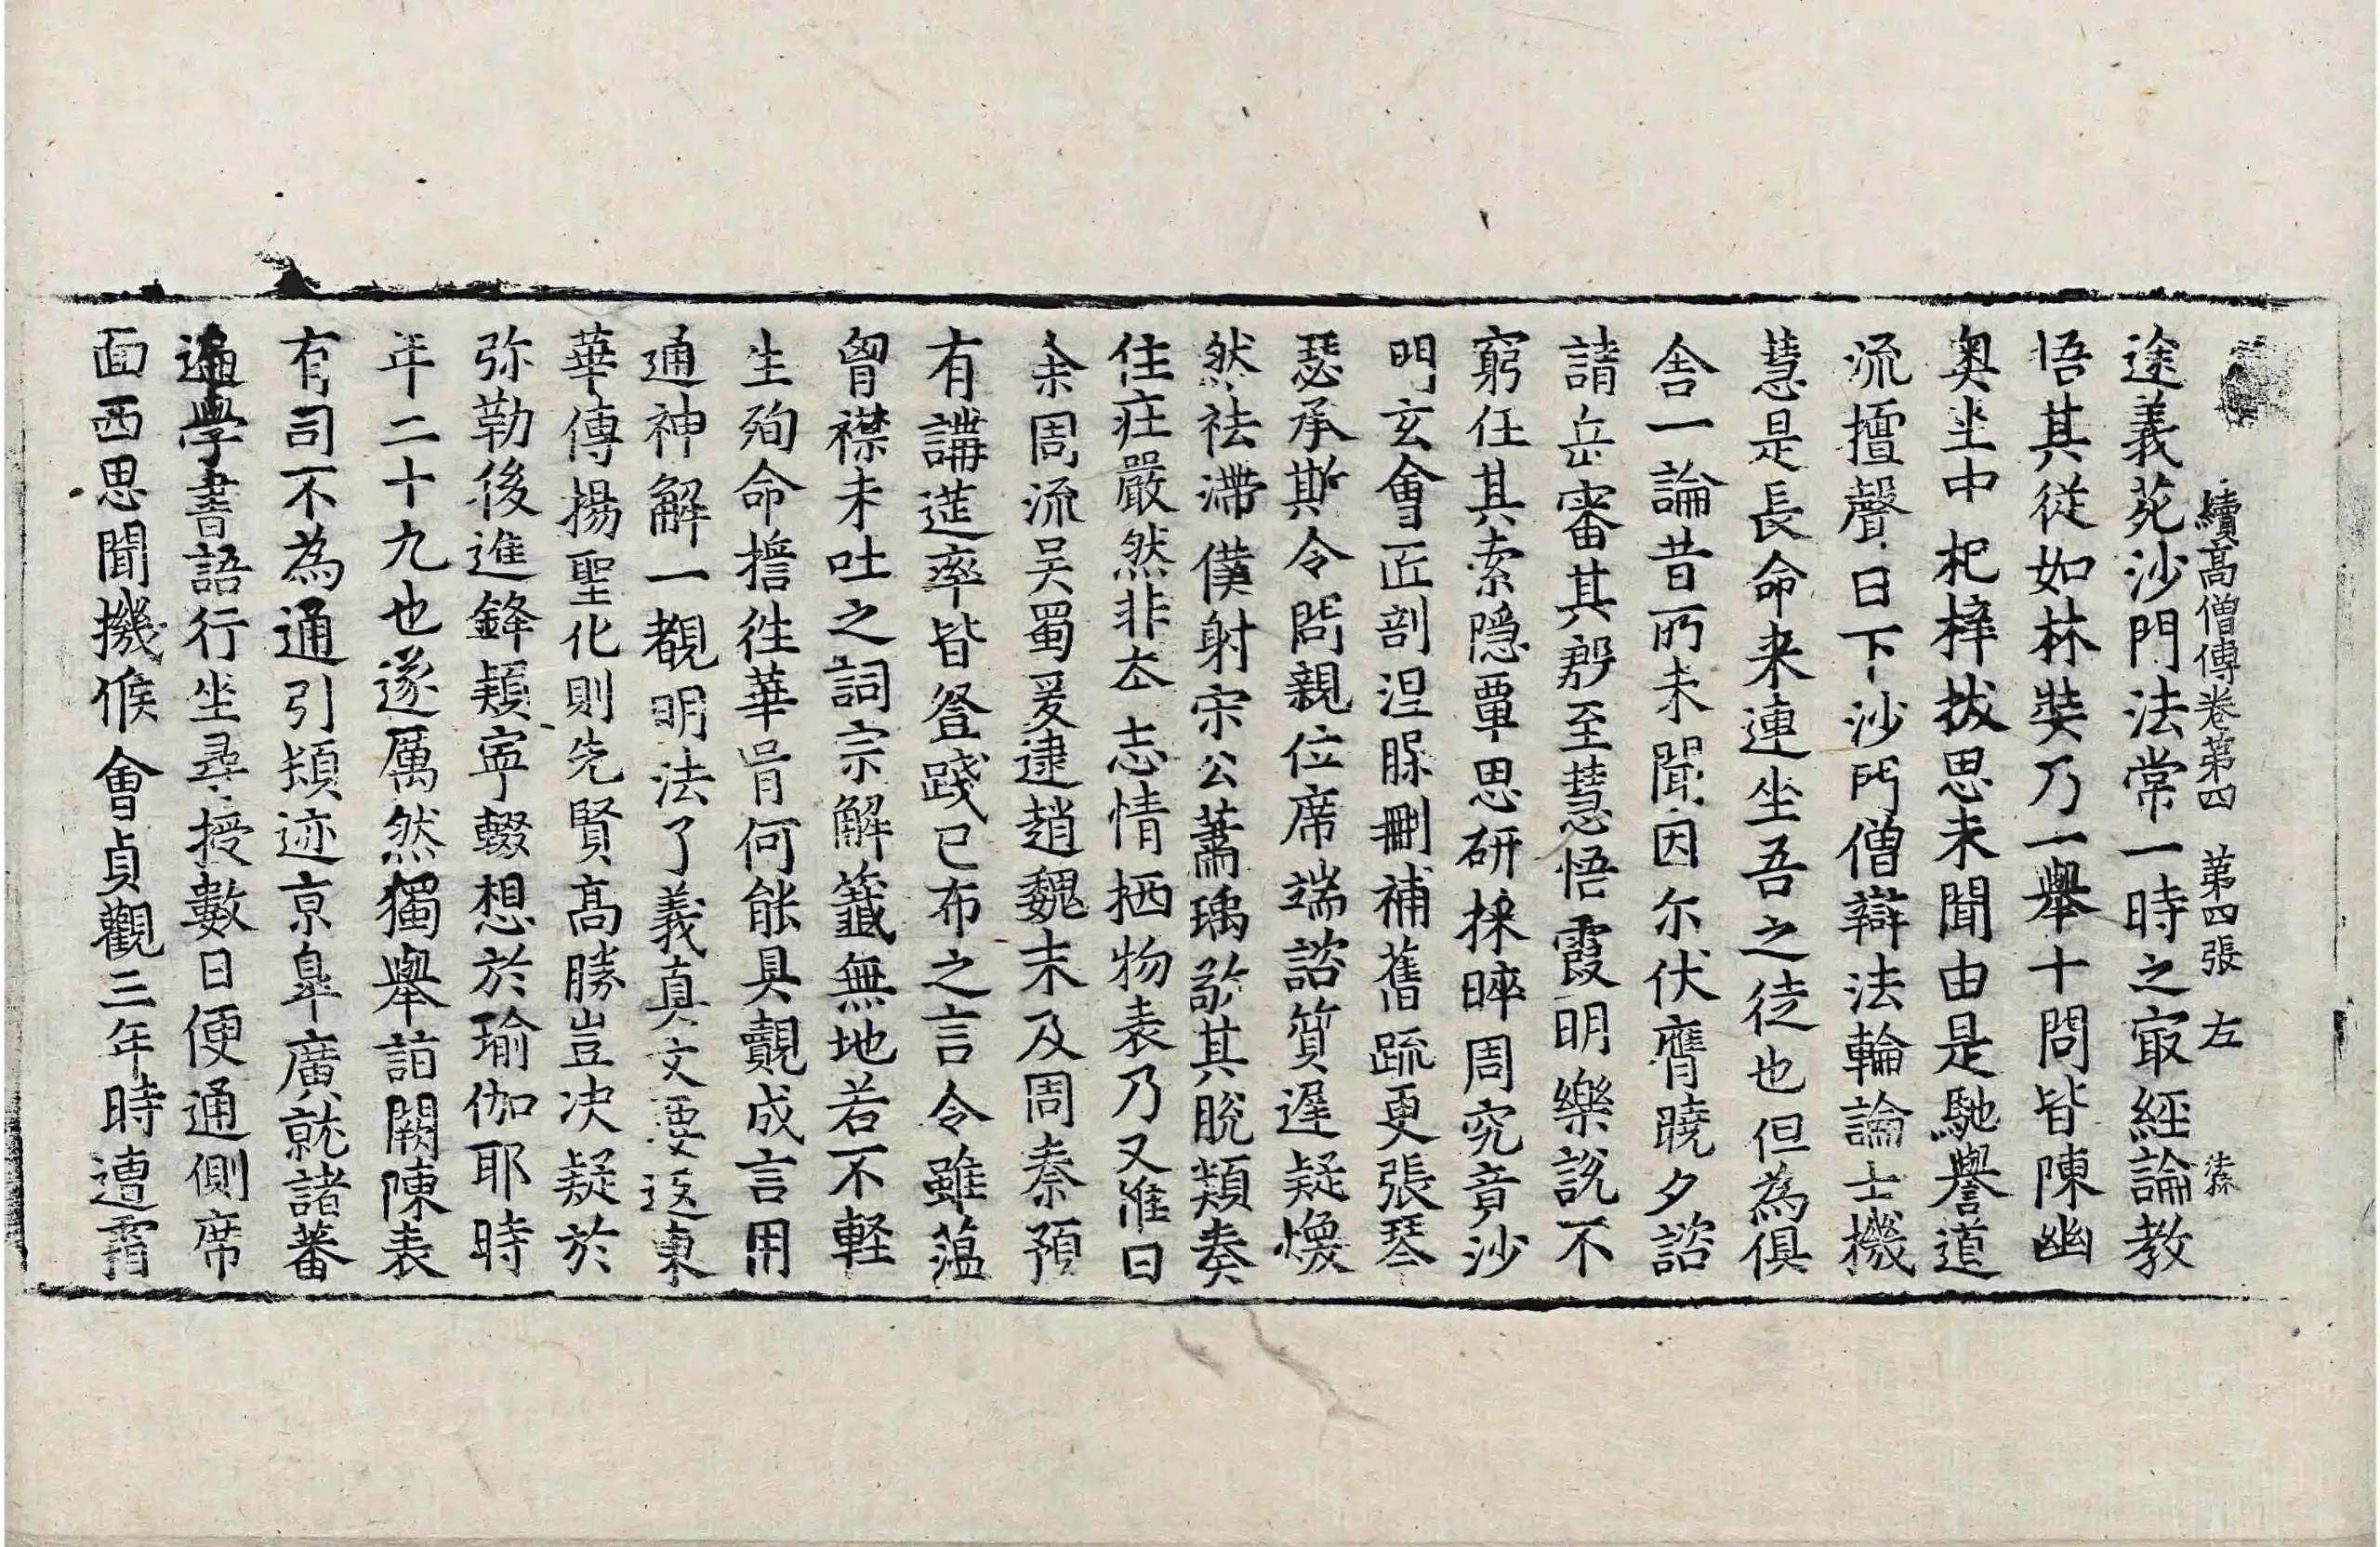 續高僧傳卷第四 第四張 左
途義苑沙門法常一時之㝡經論教
悟其從如林奘乃一舉十問皆陳幽
奧坐中杞梓拔思未聞由是馳譽道
流擅聲日下沙門僧辯法輪論士機
慧是長命来連坐吾之徒也但為俱
舍一論昔所未聞因尒伏膺曉夕諮
請岳審其殷至慧悟霞明樂說不
窮任其索隱覃思研採晬周究竟沙
門玄會匠剖涅槃刪補舊疏更張琴
瑟承斯令問親位席端諮質遲疑煥
然祛滯僕射宋公蕭瑀敬其脫類奏
住莊嚴然非夲志情栖物表乃又惟曰
余周流吴蜀爰逮趙魏末及周秦預
有講莚率皆登踐已布之言令雖蘊
胷襟未吐之詞宗解籤無地若不輕
生殉命擔徃華胥何能具覿成言用
通神解一覩明法了義真文要返東
華傳揚聖化則先賢高勝豈决疑於
弥勒後進鋒穎寧輟想於瑜伽耶時
年二十九也遂厲然獨舉詣闕陳表
有司不為通引頓迹京皐廣就諸蕃
遍學書語行坐尋授數日便通側席
面西思聞機候會貞觀三年時遭霜